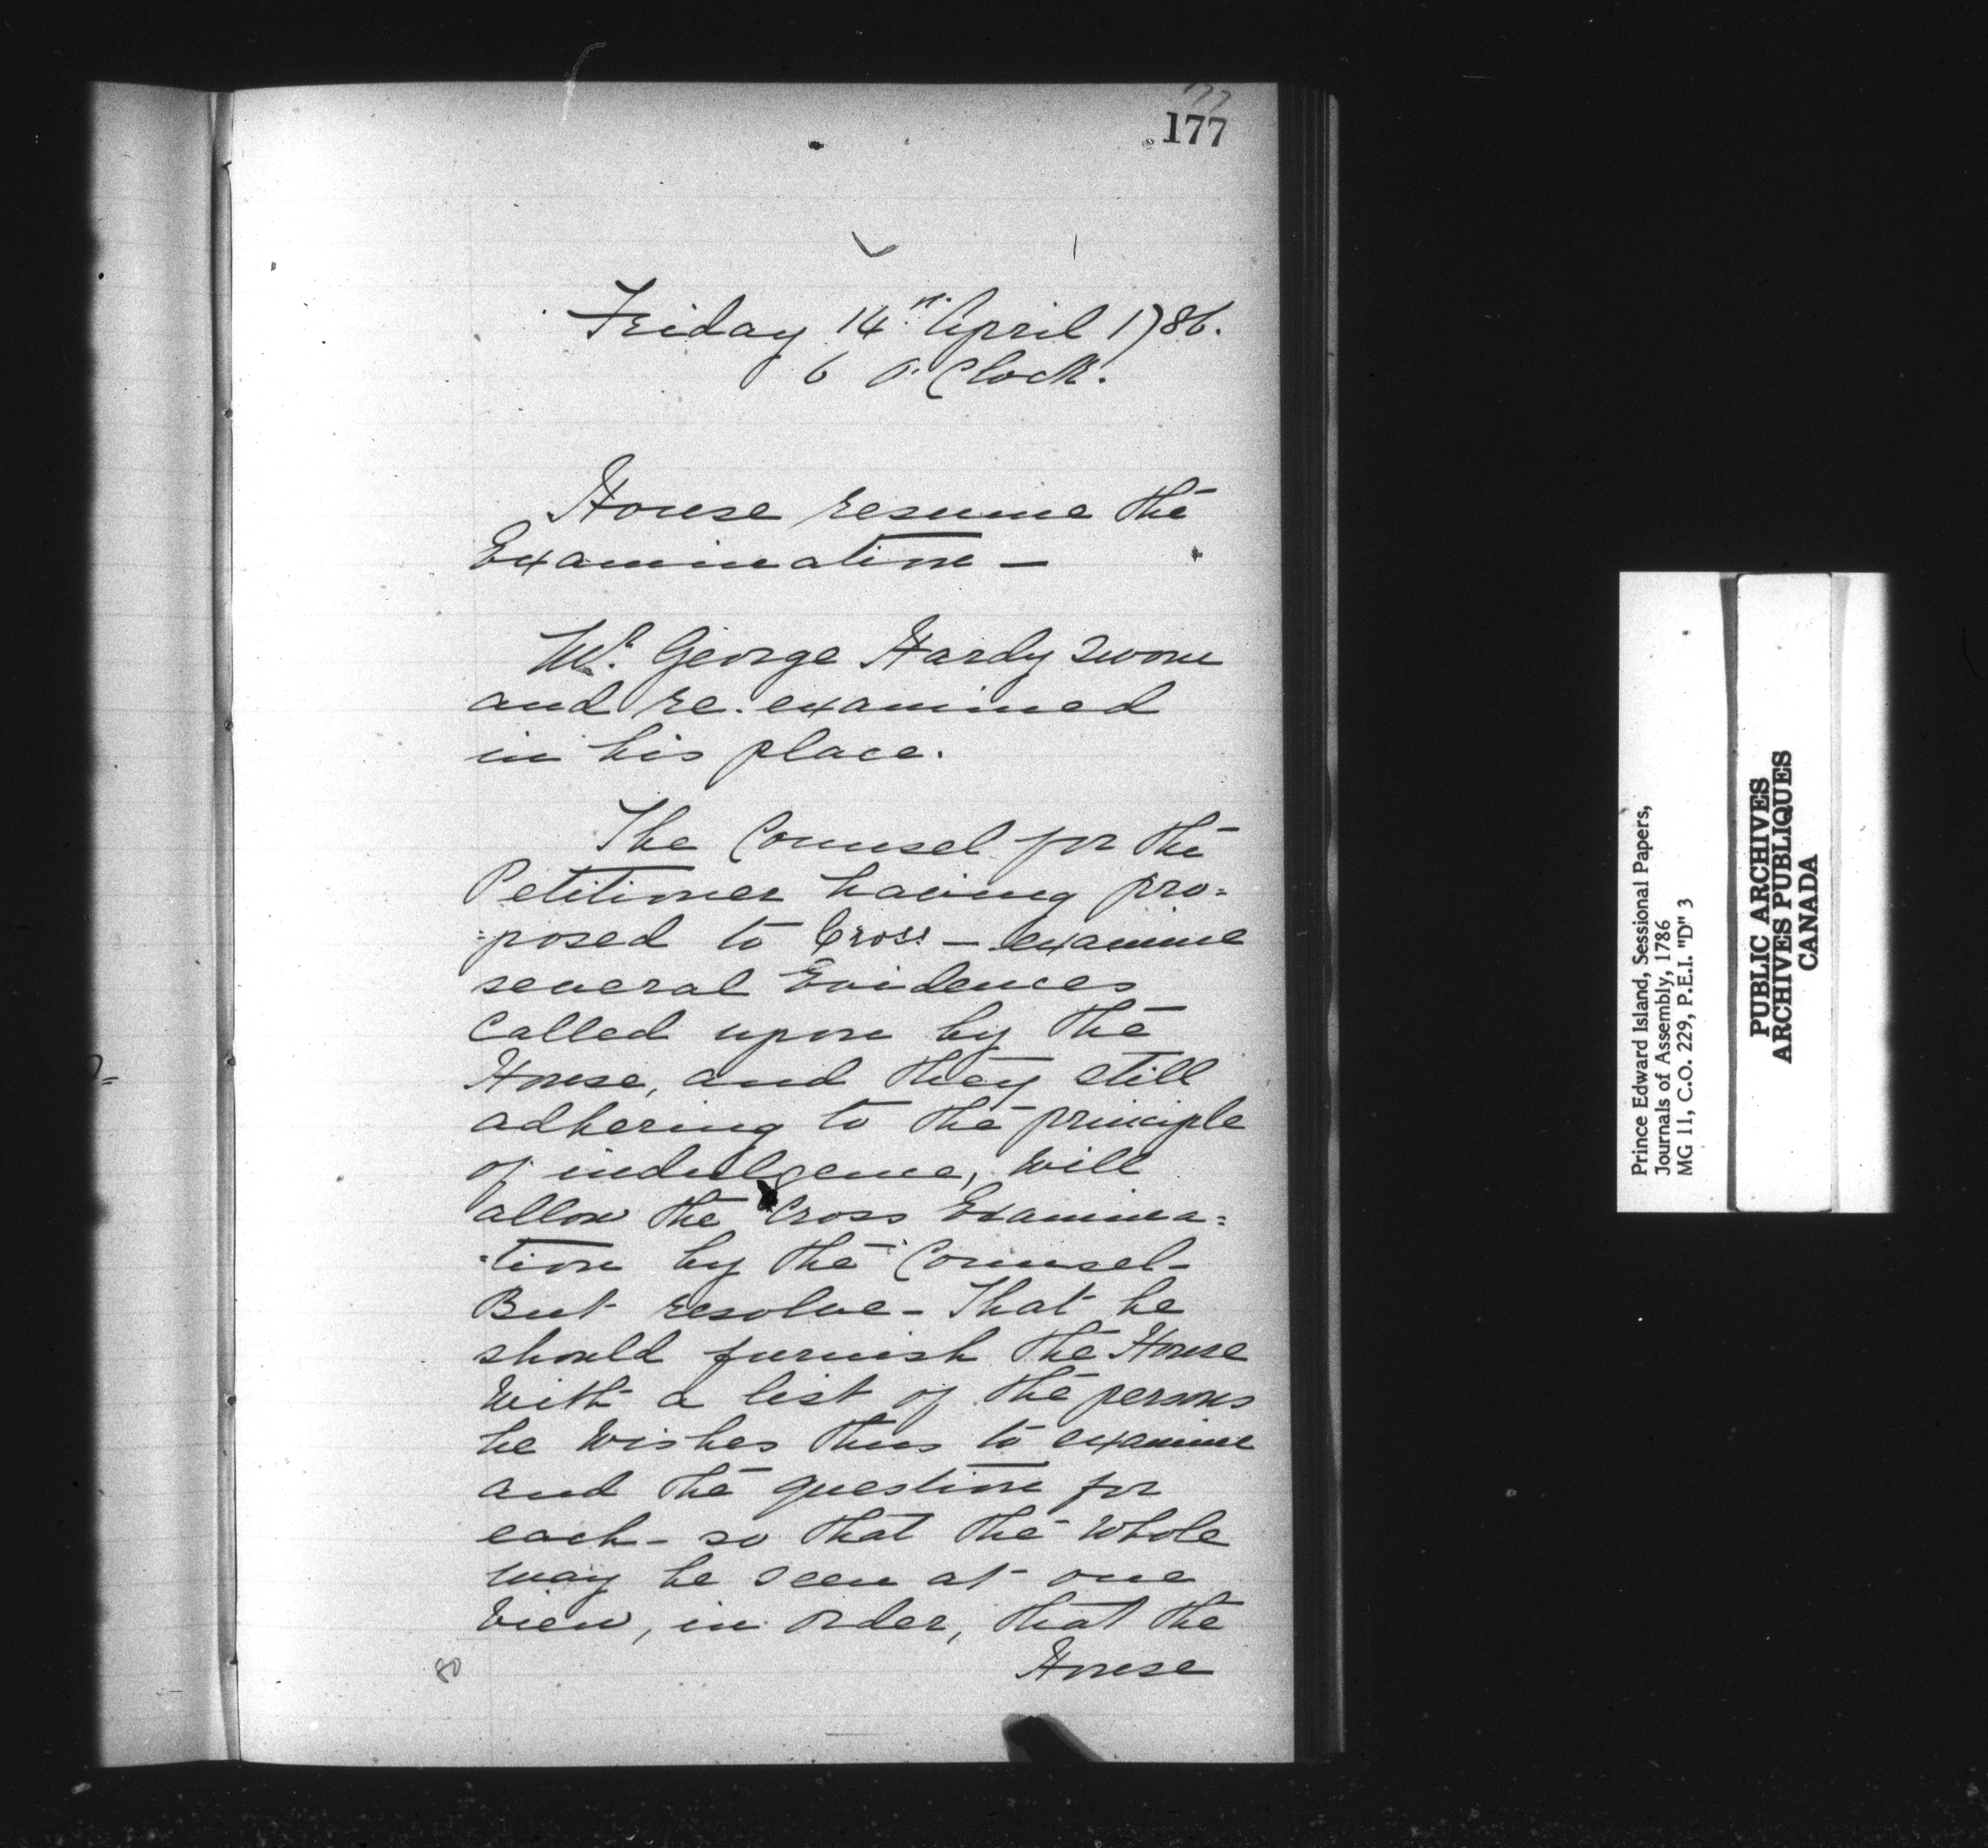 177
Friday 14th April 1786.
6 O. Clock.
House resume the
Examination —
Mr. George Hardy sworn
and re-examined
in his place.
The Counsel for the
Petitioner having pro=
=posed to Cross-examine
several Evidences
called upon by the
House, and they still
adhering to the principle
of indulgence, will
allow the Cross Examina=
=tion by the Counsel-
But resolve- That he
should furnish the House
with a list of the persons
he wishes thus to examine
and the question for
each- so that the whole
may be seen at one
view, in order, that the
House
80
Prince Edward Island, Sessional Papers,
Journals of Assembly, 1786
MG 11, C.O. 229, P.E.I. "D" 3
PUBLIC ARCHIVES
ARCHIVES PUBLIQUES
CANADA